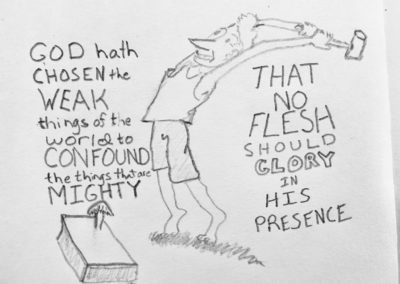 GOD hath
CHOSEN the
WEAK
things of the
world to
CONFOUND
the things that are
MIGHTY
THAT
NO
FLESH
SHOULD
GLORY
IN
HIS
PRESENCE